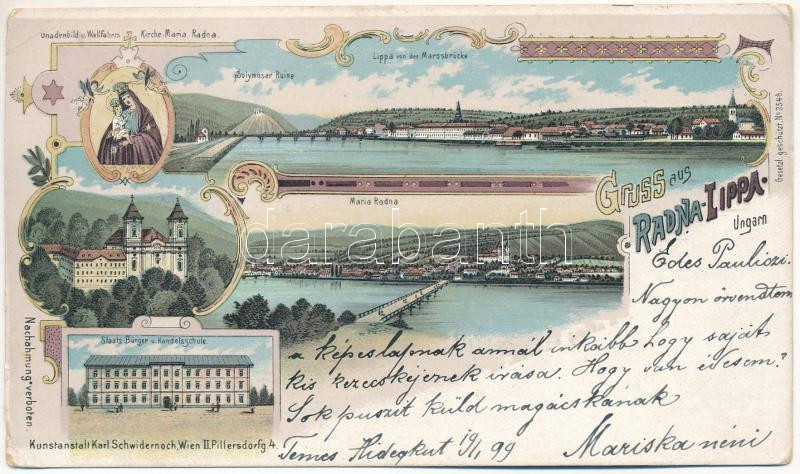 Gnadenbild u. Wallfahrts Kirche Maria Radna.
Solymoser Ruine
Lippa von der Marosbrücke
Gesetzl. geschützt. No 3546.
Maria Radna
Gruss aus
Radna-Lippa.
Ungarn
Staats-Bürger u. Handelsschule.
Nachahmung verboten.
Kunstanstalt Karl Schwidernoch, Wien II. Pillersdorfg. 4.
darabanth
Édes Pauliczi.
Nagyon örvendtem
a képeslapnak annál inkább hogy saját
kis kezecskéjenek irása. Hogy van édesem?
Sok puszit küld magácskának
Temes Hidegkut 19/1 99 Mariska néni